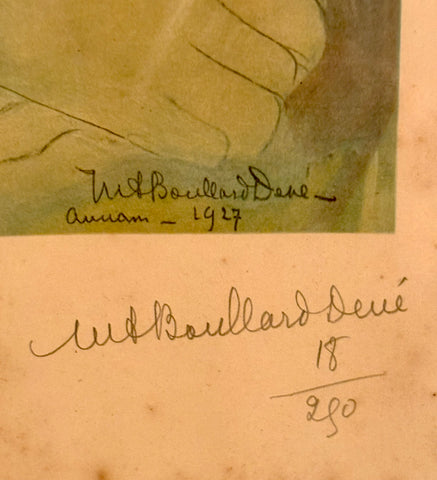 MABoullardDevé
Annam _ 1927
MABoullardDevé
18
250